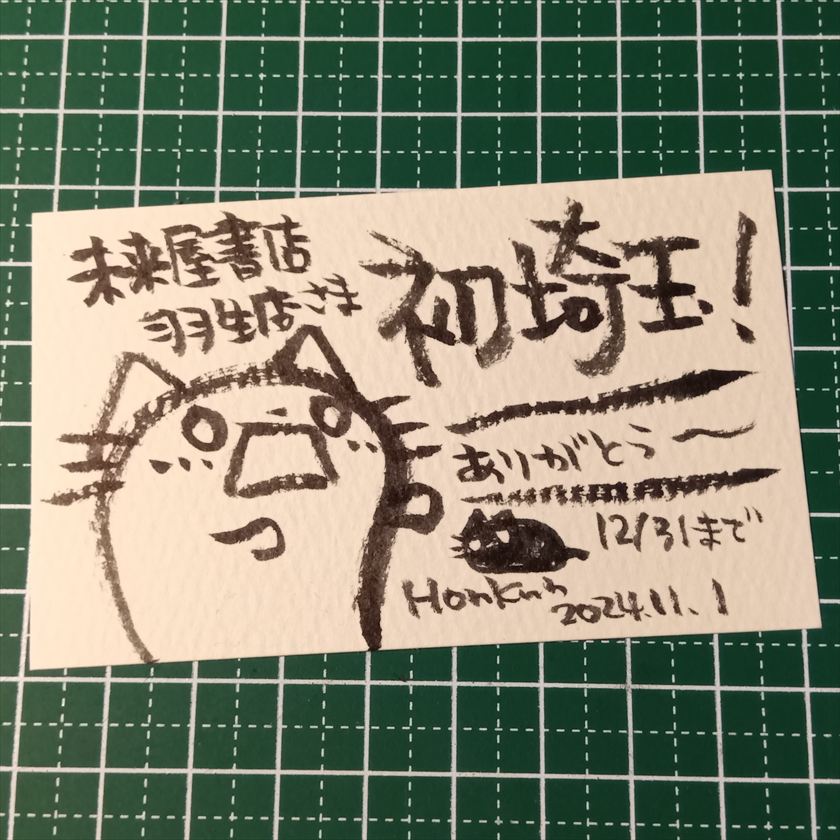 未来屋書店
羽生店さま
初埼玉!
ありがとう〜
12/31まで
Honkun
2024.11.1